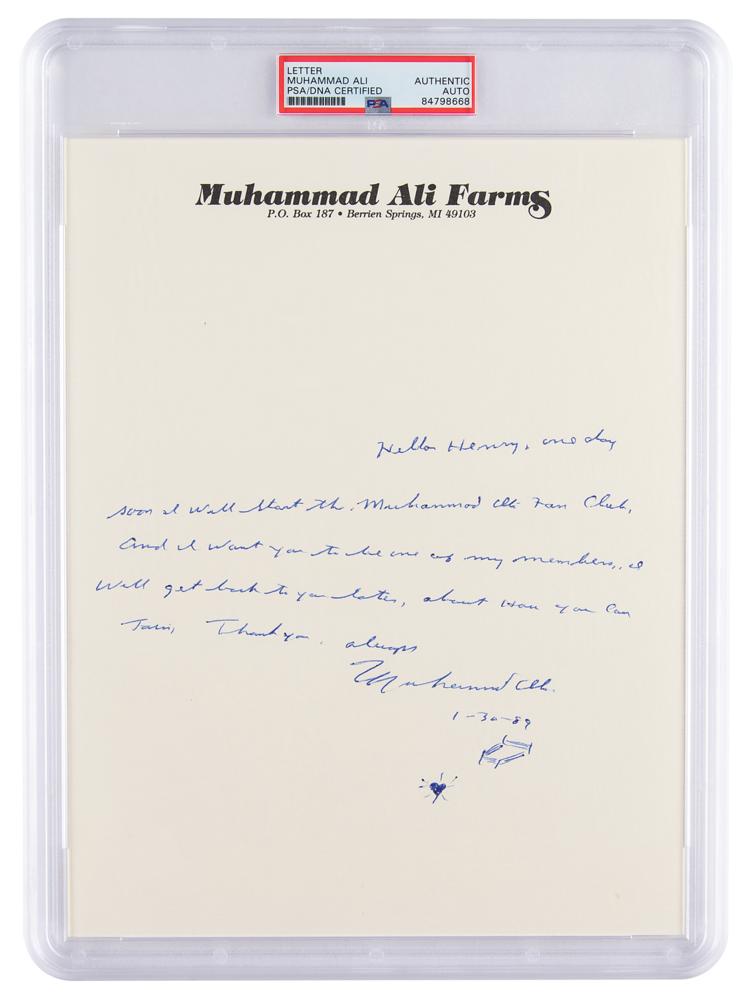 LETTER
MUHAMMAD ALI
PSA/DNA CERTIFIED
AUTHENTIC
AUTO
84798668
PSA
Muhammad Ali Farms
P.O. Box 187 • Berrien Springs, MI 49103
Hello Henry, one day
soon I Will Start the Muhammad Ali Fan Club,
And I Want you to be one of my members, I
Will get back to you later, about How you Can
Join, Thank you. always
Muhammad Ali
1-30-89